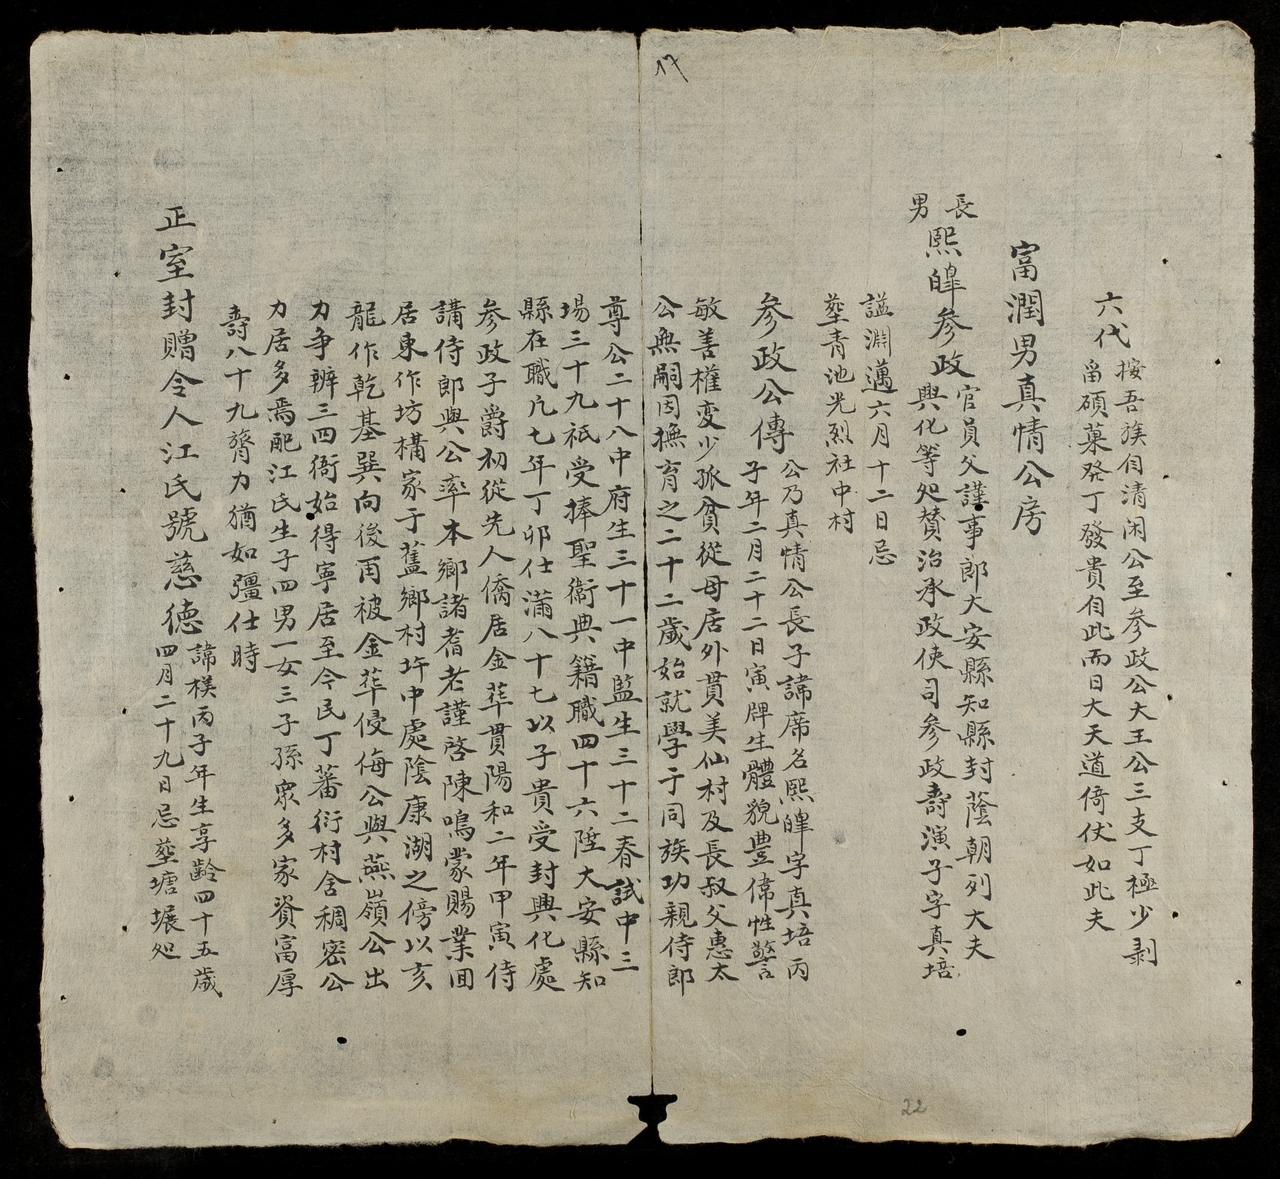 17
六代按吾族自清閑公至參政公大王公三支丁極少剥
畱碩菓癸丁發貴自此而日大天道倚伏如此夫
富潤男真情公房
長男熙皞參政官員父謹事郎大安縣知縣封蔭朝列大夫
興化等処贊治承政使司參政壽演子字真培
諡淵邁六月十二日忌
塟青池光烈社中村
參政公傳公乃真情公長子諱席名熙皞字真培丙
子年二月二十二日寅牌生體貌豊偉性警
敏善權变少孤貧從母居外貫美仙村及長叔父惠太
公無嗣因撫育之二十二歲始就學于同族功親侍郎
尊公二十八中府生三十一中監生三十二春試中三
場三十九祇受捧聖衛典籍職四十六陞大安縣知
縣在職凡七年丁卯仕滿八十七以子貴受封興化處
參政子爵初從先人僑居金華貫陽和二年甲寅侍
講侍郎與公率本鄉諸耆老謹啓陳鳴蒙賜業囬
居東作坊構家于舊鄉村圩中處陰康湖之傍以亥
龍作乾基巽向後再被金華侵侮公與燕嶺公出
力争辨三四衙始得寧居至今民丁蕃衍村舍稠密公
力居多焉配江氏生子四男一女三子孫衆多家資富厚
壽八十九膂力猶如彊仕時
正室封贈令人江氏號慈德諱模丙子年生享齡四十五歲
四月二十九日忌塟塘堀処
22